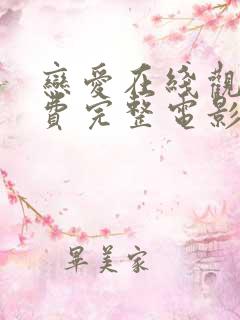 戀愛在綫觀
費完整電影
畢美家